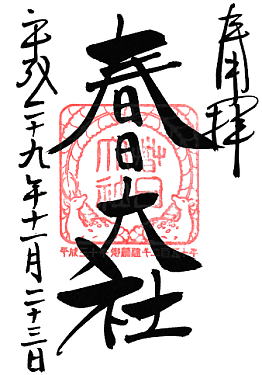 奉拝
春日大社
平成二十九年十一月二十三日